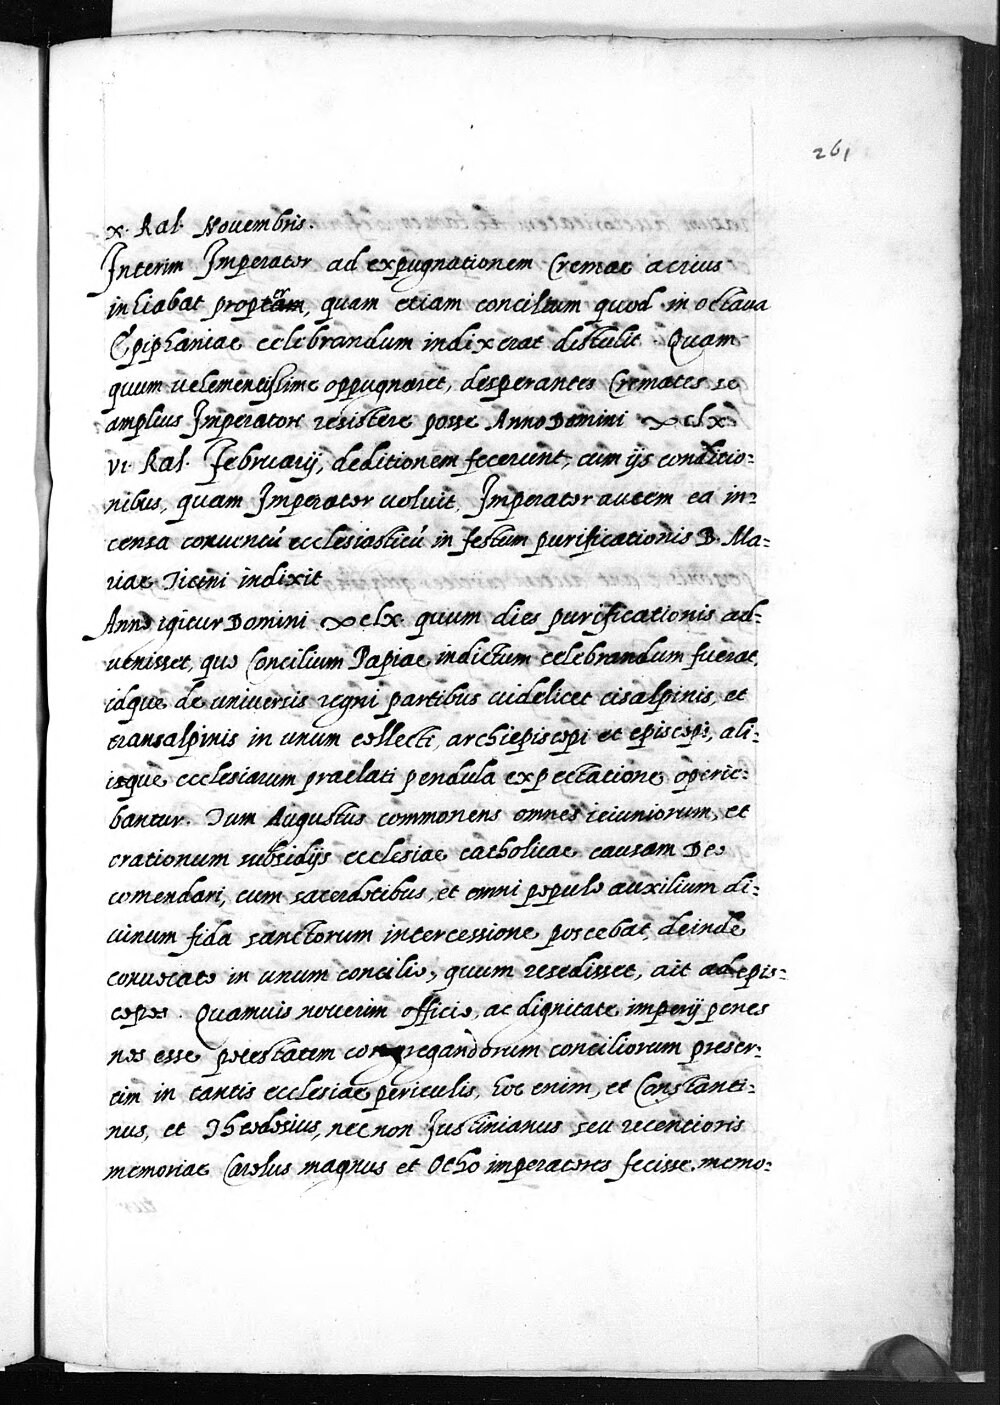 261
x. Kal. Novembris.
Interim Imperator ad expugnationem Cremae acrius
inhiabat propter, quam etiam concilium quod in octava
Epiphaniae celebrandum indixerat distulit. Quam
quum uehementissime oppugnaret, desperantes Cremates se
amplius Imperatore resistere posse Anno Domini ∞clx
vi. Kal. Februarij, deditionem fecerunt, cum ijs conditio=
nibus, quam Imperator uoluit, Imperator autem ea in=
censa conuentú ecclesiasticú in festum purificationis D. Ma=
riae Ticini indixit
Anno igitur Domini ∞clx. quum dies purificationis ad=
uenisset, quo Concilium Papiae indictum celebrandum fuerat,
idque de universis regni partibus uidelicet cisalpinis, et
transalpinis in unum collecti, archiepiscopi et episcopi, ali=
ique ecclesiarum praelati pendula expectatione operie=
bantur. Tum Augustus commonens omnes ieiuniorum, et
orationum subsidijs ecclesiae catholicae causam Deo
comendari, cum sacerdotibus, et omni populo auxilium di=
uinum fida sanctorum intercessione poscebat, deinde
conuocato in unum concilio, quum resedisset, ait ad epis=
copos. Quamuis nouerim officio, ac dignitate imperij penes
nos esse potestatem congregandorum conciliorum preser=
tim in tantis ecclesiae periculis, hoc enim, et Constanti=
nus, et Theodosius, nec non Justinianus seu recentioris
memoriae Carolus magnus et Otho imperatores fecisse memo=